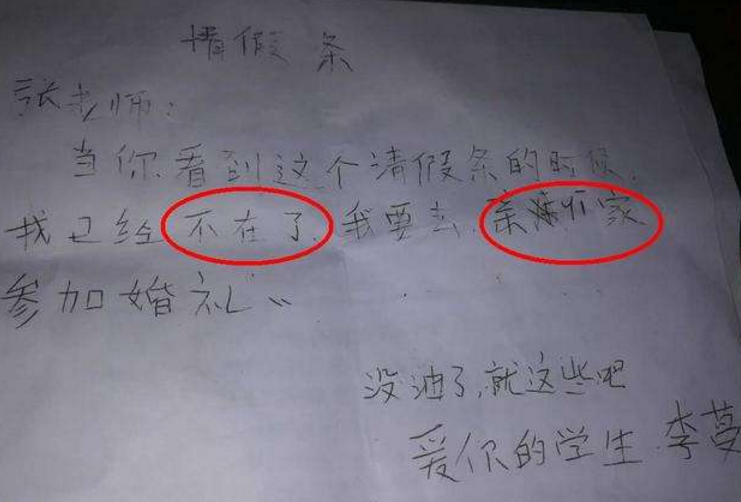 情假条
张老师：
当你看到这个清假条的时候，
我已经不在了，我要去亲家
参加婚礼
没油了，就这些吧
爱你的学生 李蔓